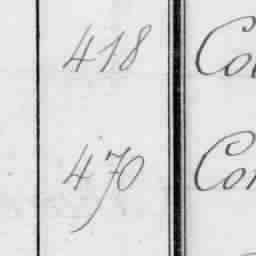 418 Co
470 Con